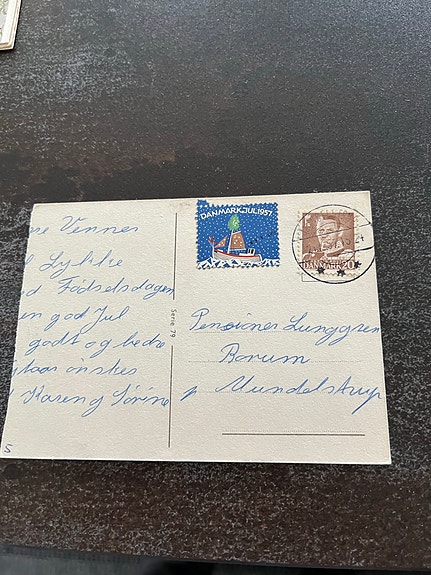 ne Venner
l Lykke
d Fødselsdagen
en god Jul
godt og bedre
ytaar ønskes
Karen og Sørine
5
Serie 79
DANMARK JUL 1957
DANMARK
Pensioner Lunggren
Borum
p Mundelstrup